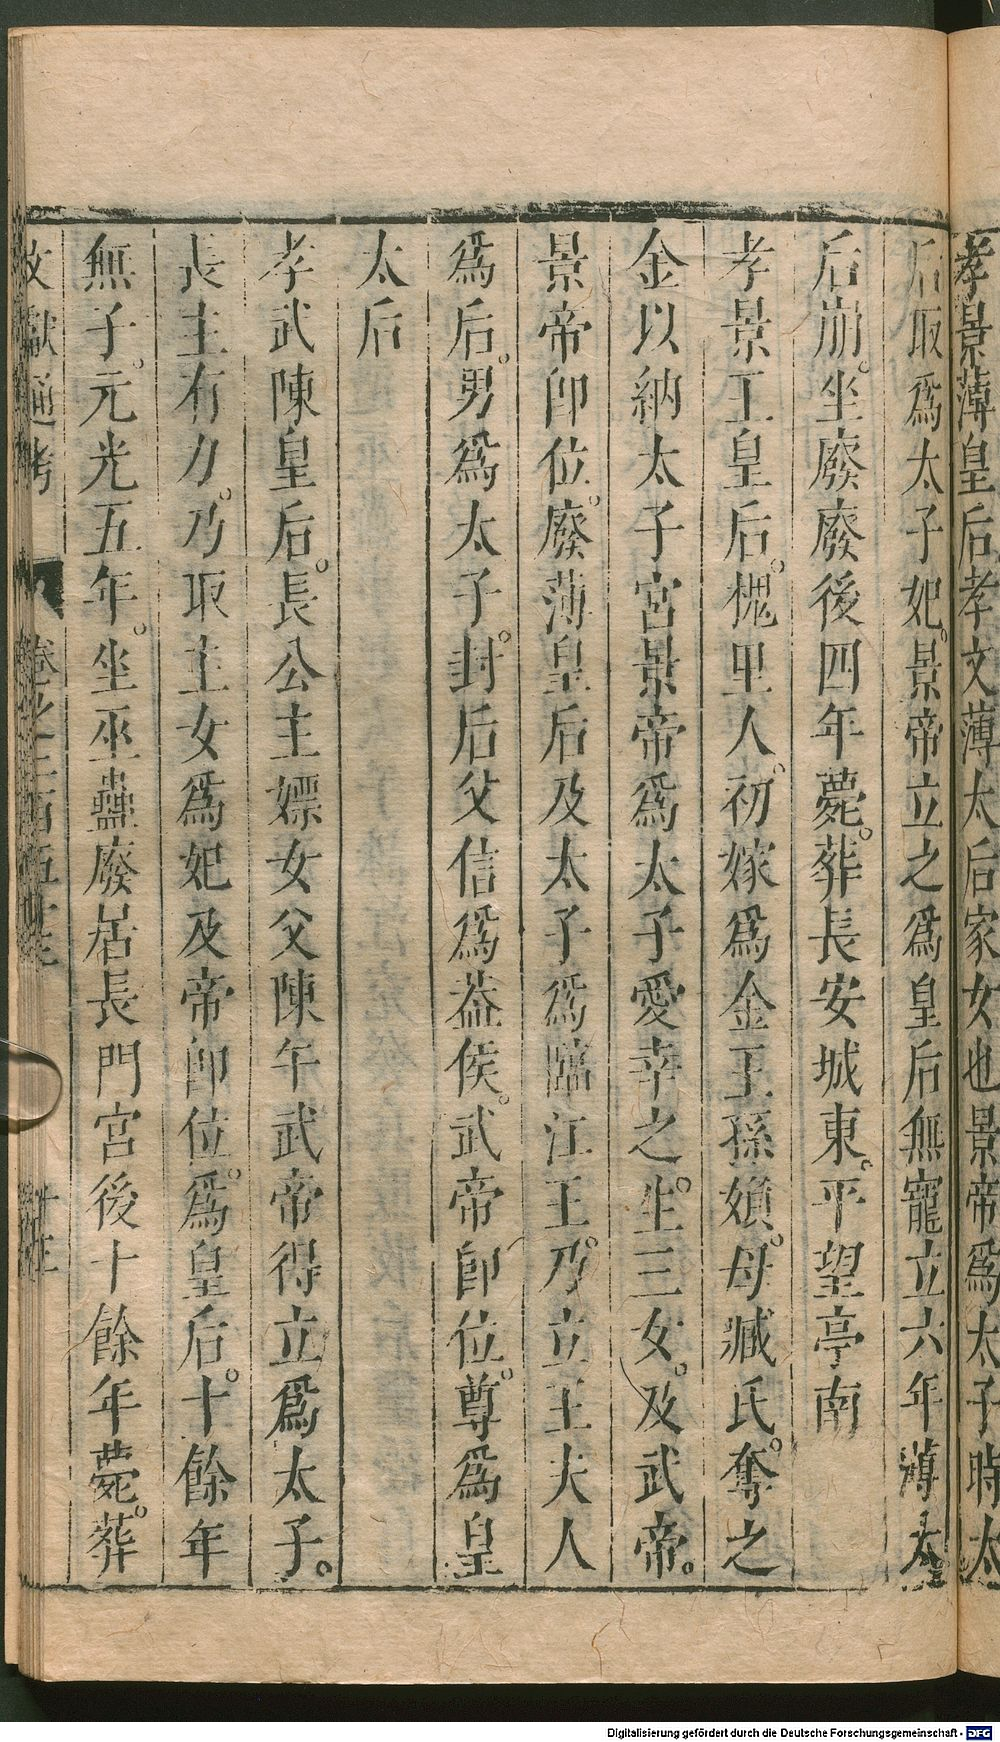 孝景薄皇后孝文薄太后家女也景帝爲太子時太
后取爲太子妃。景帝立之爲皇后無寵立六年薄太
后崩。坐廢廢後四年薨。葬長安城東。平望亭南
孝景王皇后。槐里人。初嫁爲金王孫媍。母臧氏。奪之
金以納太子宮景帝爲太子愛幸之。生三女。及武帝。
景帝卽位。廢薄皇后及太子爲臨江王。乃立王夫人
爲后。男爲太子。封后父信爲葢侯。武帝卽位。尊爲皇
太后
孝武陳皇后。長公主嫖女父陳午武帝得立爲太子。
長主有力。乃取主女爲妃及帝卽位。爲皇后。十餘年
無子。元光五年。坐巫蠱廢居長門宮後十餘年薨。葬
文獻通考
卷之二百五十
十三
Digitalisierung gefördert durch die Deutsche Forschungsgemeinschaft - DFG